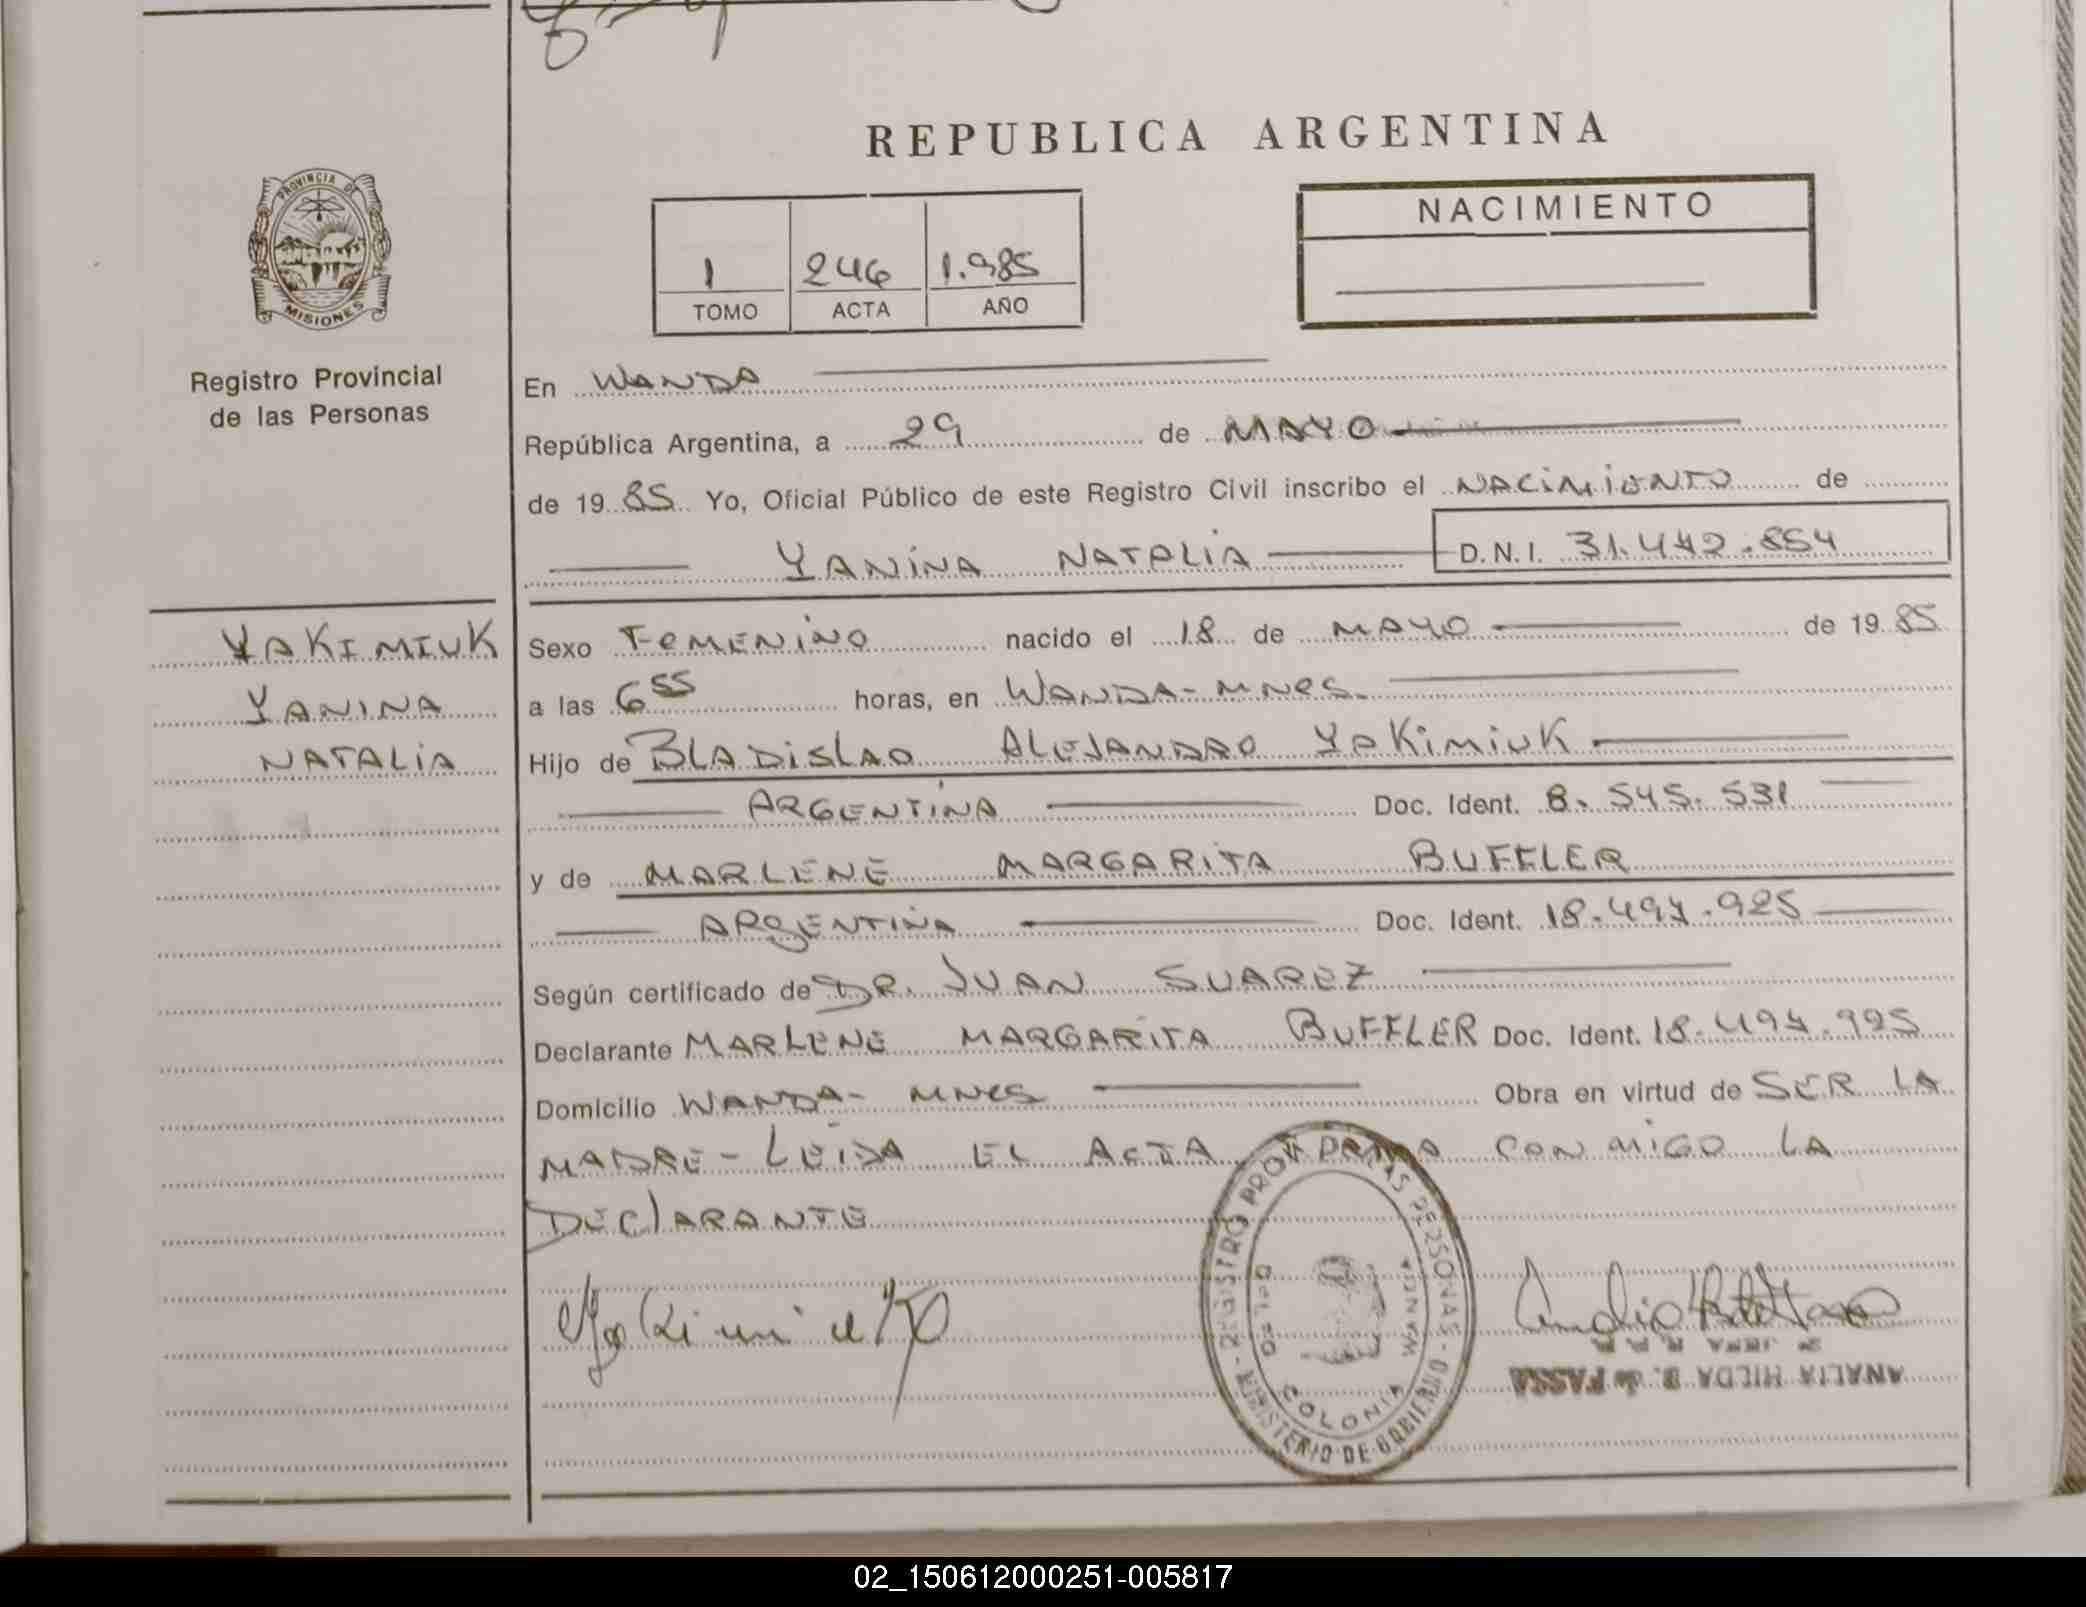 REPUBLICA ARGENTINA
PROVINCIA DE
MISIONES
Registro Provincial
de las Personas
1 246 1.985
TOMO ACTA AÑO
NACIMIENTO
En WANDA
República Argentina, a 29 de MAYO
de 19 85 Yo, Oficial Público de este Registro Civil inscribo el NACIMIENTO de
YANINA NATALIA D.N.I. 31.442.854
YAKIMIUK
YANINA
NATALIA
Sexo FEMENINO nacido el 18 de MAYO de 19 85
a las 6 55 horas, en WANDA-MNES.
Hijo de BLADISLAO ALEJANDRO YAKIMIUK
ARGENTINA Doc. Ident. 8.545.531
y de MARLENE MARGARITA BUFFLER
ARGENTINA Doc. Ident.
Según certificado de DR. JUAN SUAREZ
Declarante MARLENE MARGARITA BUFFLER Doc. Ident.
Domicilio WANDA- MNES Obra en virtud de SER LA
MADRE- LEIDA EL ACTA FIRMA CONMIGO LA
DECLARANTE
REGISTRO PROV. DE LAS PERSONAS - MINISTERIO DE GOBIERNO -
COLONIA WANDA
ANALIA HILDA B. de FASSA